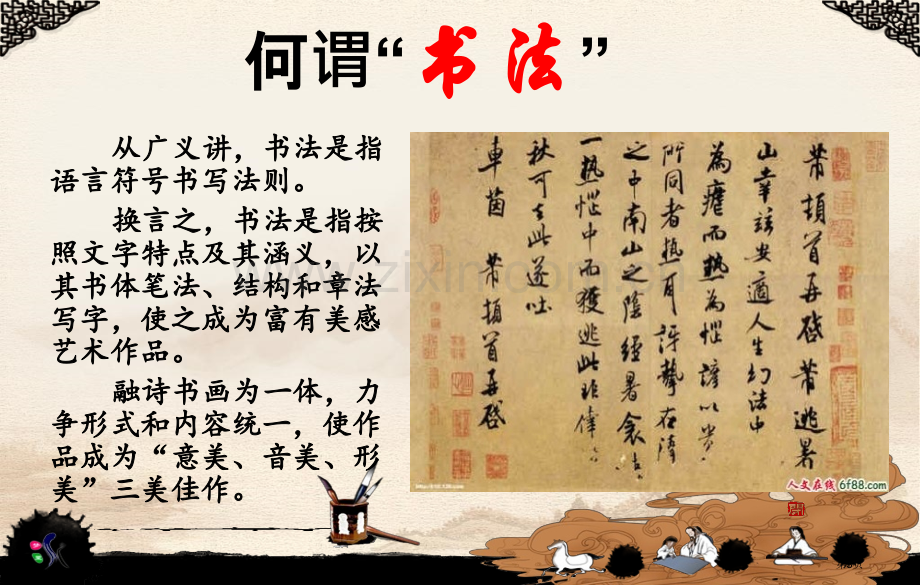 何谓“书 法”
从广义讲，书法是指
语言符号书写法则。
换言之，书法是指按
照文字特点及其涵义，以
其书体笔法、结构和章法
写字，使之成为富有美感
艺术作品。
融诗书画为一体，力
争形式和内容统一，使作
品成为“意美、音美、形
美”三美佳作。
芾頓首再啓芾逃暑
山幸兹安適人生幻法中
為瘧而熱為惱諺以貴
所同者熱耳訝摯在清
之中南山之陰經暑衾
一熱惱中而獲逃此非偉
秋可去此遂吐
車茵 芾頓首再啓
www.zixin.com.cn
人文在线 6f88.com